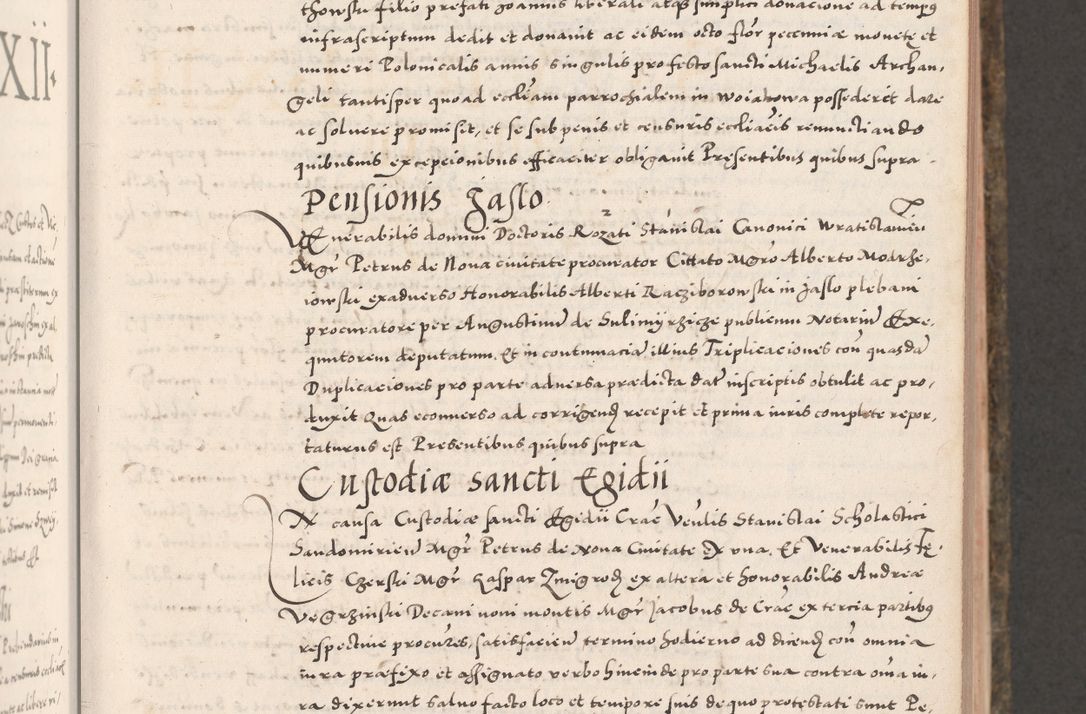 thowski filio prefati Joannis liberali atq simplici donacione ad tempus
infrascriptum dedit et donauit ac eidem octo flor pecuniæ monetę et
numeri Polonicalis annis singulis pro festo sancti Michaelis Archan,
geli tantisper quoad eccliam parrochialem in woianowa possederit dare
ac soluere promisit, et se sub penis et censuris eccliacis renunctiando
quibusuis excepcionibus efficaciter obligauit Pręsentibus quibus supra
Pensionis Jaslo
Venerabilis domini Doctoris Rozati Stanislai Canonici Wratislauien
Mgr Petrus de Noua ciuitate procurator Cittato Mgro Alberto Modrse,
iowski ex aduerso Honorabilis Alberti Racziborowski in Jaslo plebani
procuratore per Augustinu de Sulimyrzicze publicum Notariu Exe,
quutorem deputatum. Et in contumacia illius Triplicaciones con quasda
Duplicaciones pro parte aduersa prædicta dat inscriptis obtulit ac pro,
duxit Quas econuerso ad corrigend recepit et prima iuris complete repor,
taturus est Presentibus quibus supra
Custodiæ sancti Egidii
IN causa Custodiæ sancti Egidii Crac Venlis Stanislai Scholastici
Sandomirien Mgr Petrus de Noua Ciuitate Ex una, Et Venerabilis Fę,
licis Czerski Mgr Gaspar Zmigrod ex altera et honorabilis Andreæ
Vegrzinski Decani noui montis Mgr Jacobus de Crac ex tercia partibus
respectiue procures, satisfacien termino hodierno ad dicend con omnia
iura præfixo et assignato verbo hincinde pro parte sua contra oma iu,
ra dixerunt saluo facto loco et tempore suis de quo protestati sunt Pe,